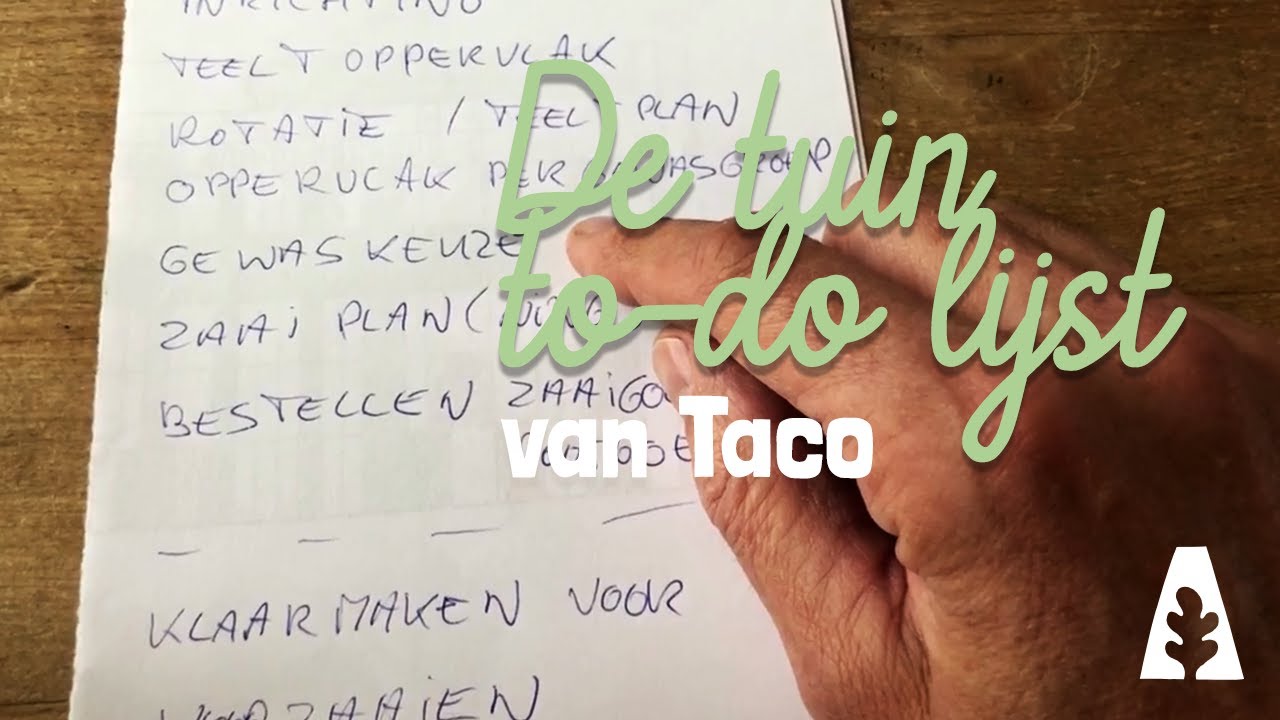 INRICHTING
TEELT OPPERVLAK
ROTATIE / TEELTPLAN
OPPERVLAK PER GEWASGROEP
GEWASKEUZE
ZAAI PLAN(NING
BESTELLEN ZAAIGO
KLAARMAKEN VOOR
VOORZAAIEN
De tuin
to-do lijst
van Taco